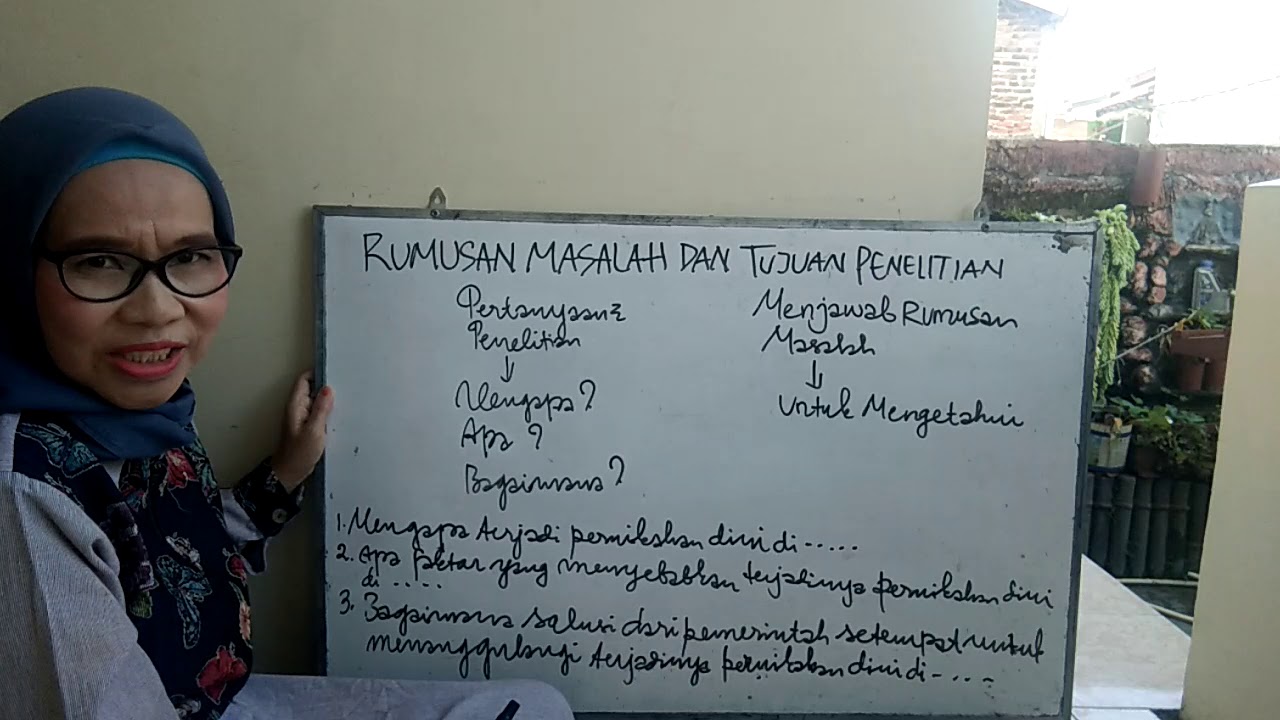 RUMUSAN MASALAH DAN TUJUAN PENELITIAN
Pertanyaan2
Penelitian
↓
Mengapa?
Apa?
Bagaimana?
Menjawab Rumusan
Masalah
↓
Untuk Mengetahui
1. Mengapa terjadi pernikahan dini di .....
2. Apa faktor yang menyebabkan terjadinya pernikahan dini
di .....
3. Bagaimana solusi dari pemerintah setempat untuk
menanggulangi terjadinya pernikahan dini di ....